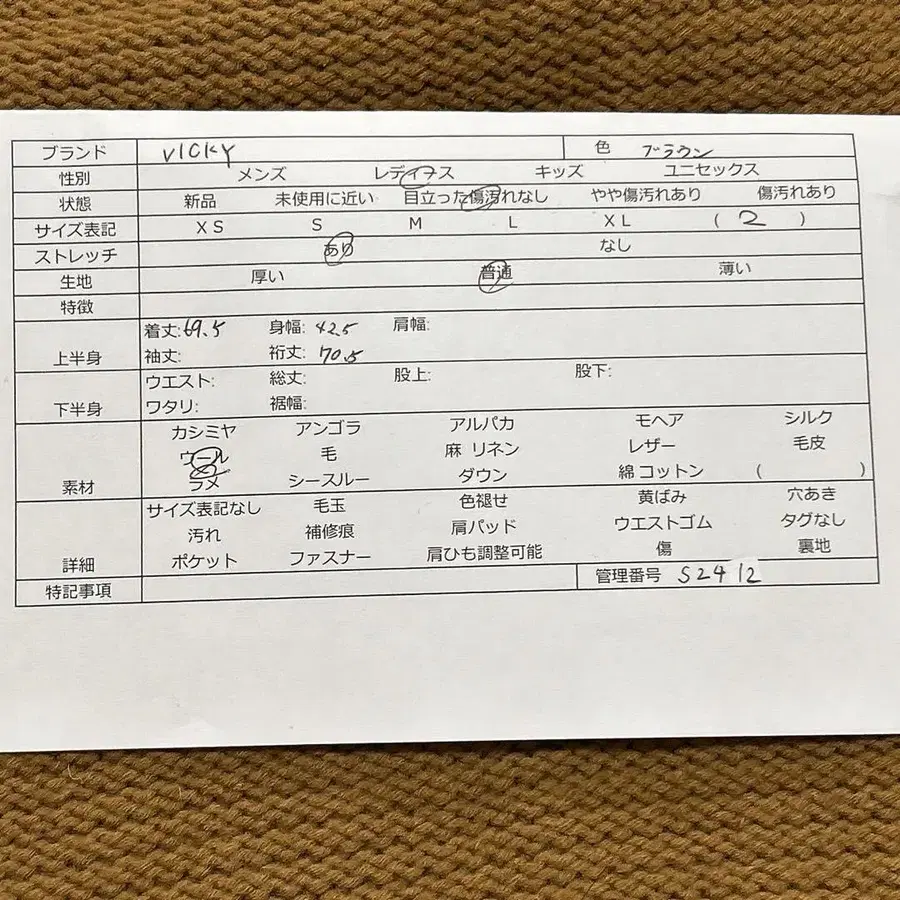 ブランド VICKY 色 ブラウン
性別 メンズ レディース キッズ ユニセックス
状態 新品 未使用に近い 目立った傷汚れなし やや傷汚れあり 傷汚れあり
サイズ表記 XS S M L XL ( 2 )
ストレッチ あり なし
生地 厚い 普通 薄い
特徴
上半身 着丈:69.5 身幅: 42.5 肩幅:
袖丈: 裄丈: 70.5
下半身 ウエスト: 総丈: 股上: 股下:
ワタリ: 裾幅:
素材 カシミヤ アンゴラ アルパカ モヘア シルク
ウール 毛 麻 リネン レザー 毛皮
ラメ シースルー ダウン 綿 コットン ( )
詳細 サイズ表記なし 毛玉 色褪せ 黄ばみ 穴あき
汚れ 補修痕 肩パッド ウエストゴム タグなし
ポケット ファスナー 肩ひも調整可能 傷 裏地
特記事項 管理番号 S2412